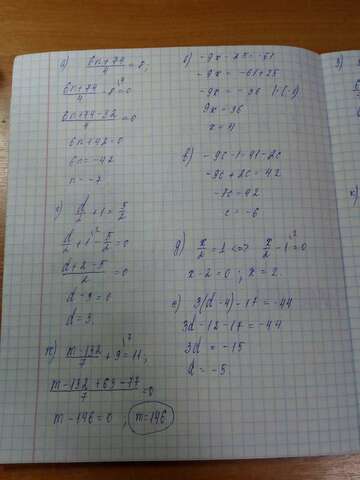 а) (6n+74)/4 = 8;
(6n+74)/4 - 8 = 0
(6n+74-32)/4 = 0
6n+42=0
6n=-42
n=-7
г) d/2 + 1 = 5/2
d/2 + 1 - 5/2 = 0
(d+2-5)/2 = 0
d-3=0
d=3.
ж) (m-132)/7 + 9 = 11;
(m-132+63-77)/7 = 0
m-146=0; m=146
б) -9x-25=-61
-9x = -61+25
-9x = -36 |·(-1)
9x=36
x=4
в) -9c-1=41-2c
-9c+2c=42
-7c=42
c=-6
д) x/2 = 1 <=> x/2 - 1 = 0
x-2=0; x=2.
е) 3(d-4)-17=-44
3d-12-17=-44
3d=-15
d=-5
з)